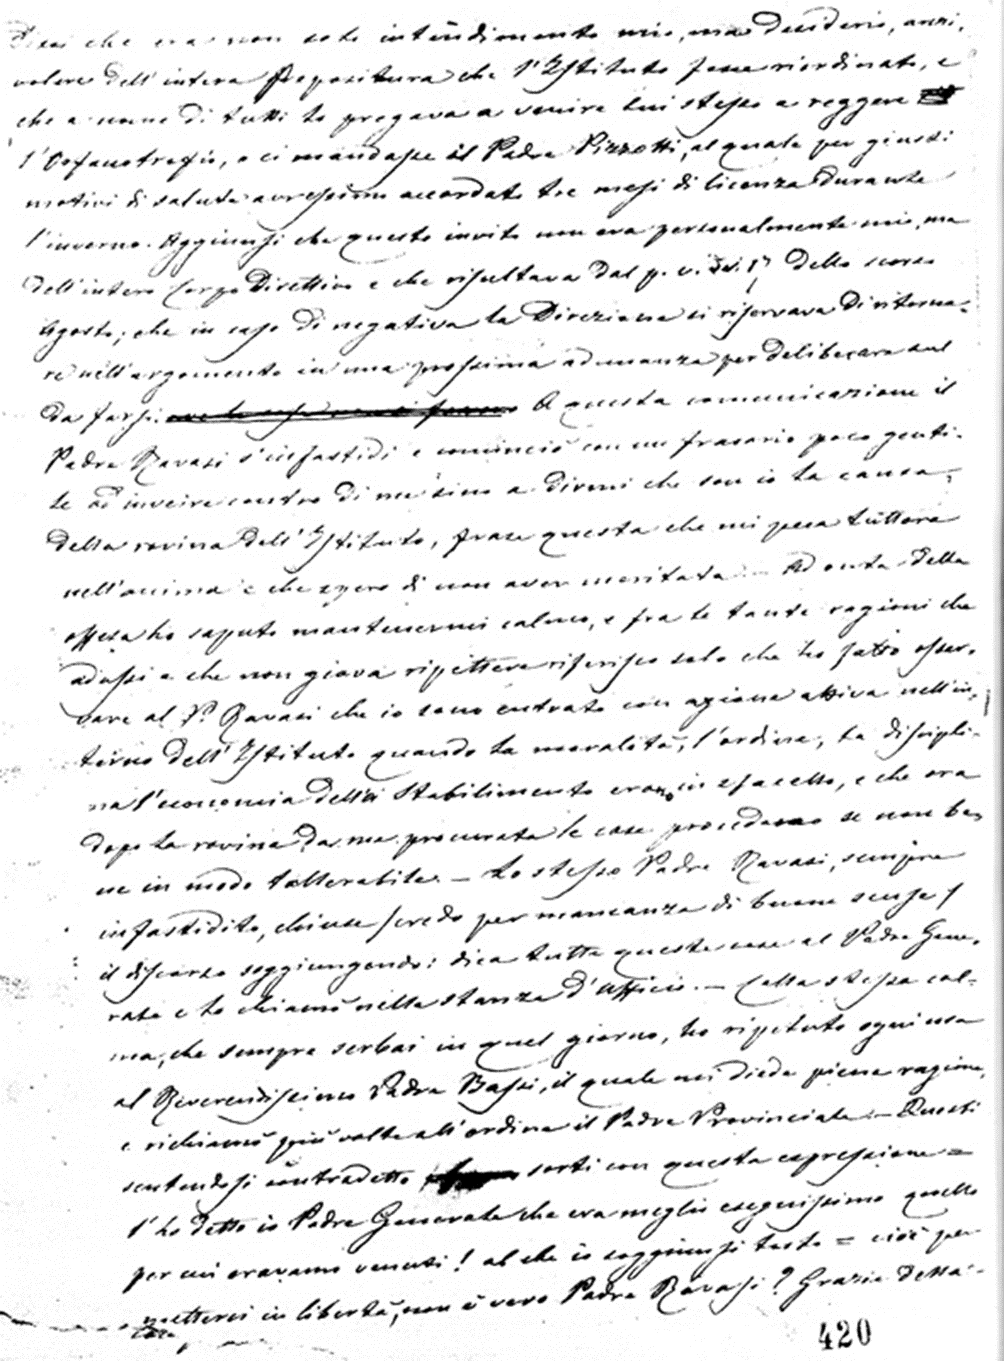 dissi che era non solo intendimento mio, ma desiderio, anzi,
volere dell'intera Prepositura che l'Istituto fosse riordinato, e
che a nome di tutti lo pregava a venire lui stesso a reggere
l'Orfanotrofio, o ci mandasse il Padre Pizzotti, al quale per giusti
motivi di salute avressimo accordato tre mesi di licenza durante
l'inverno. Aggiunsi che questo invito non era personalmente mio, ma
dell'intero Corpo Direttivo e che risultava dal p. v. dello scorso
Agosto; che in caso di negativa la Direzione si riservava di ritorna-
re nell'argomento in una prossima adunanza per deliberare sul
da farsi. A questa comunicazione il
Padre Ravasi s'infastidì e cominciò con un frasario poco genti-
le ad inveire contro di me sino a dirmi che son io la causa,
della rovina dell'Istituto, frase questa che mi pesa tuttora
nell'anima e che spero di non aver meritata. — Ad onta della
offesa ho saputo mantenermi calmo, e fra le tante ragioni che
adussi e che non giova ripettere riferisco solo che ho fatto osser-
vare al P. Ravasi che io sono entrato con azione attiva nell'in-
terno dell'Istituto quando la moralità, l'ordine, la discipli-
na l'economia dello Stabilimento erano in isfacello, e che ora
dopo la rovina da me procurata le cose procedono se non be-
ne in modo tollerabile. — Lo stesso Padre Ravasi, sempre
infastidito, chiuse / credo per mancanza di buone scuse /
il discorso soggiungendo: dica tutte queste cose al Padre Gene-
rale e lo chiamò nella stanza d'Ufficio. — Colla stessa cal-
ma, che sempre serbai in quel giorno, ho ripetuto ogni cosa
al Reverendissimo Padre Bassi, il quale mi diede piena ragione,
e richiamò più volte all'ordine il Padre Provinciale. — Questi
sentendosi contradetto sortì con questa espressione =
l'ho detto io Padre Generale che era meglio eseguissimo quello
per cui eravamo venuti! al che io soggiunsi tosto = cioè per
metterci in libertà, non è vero Padre Ravasi? Grazie della
420